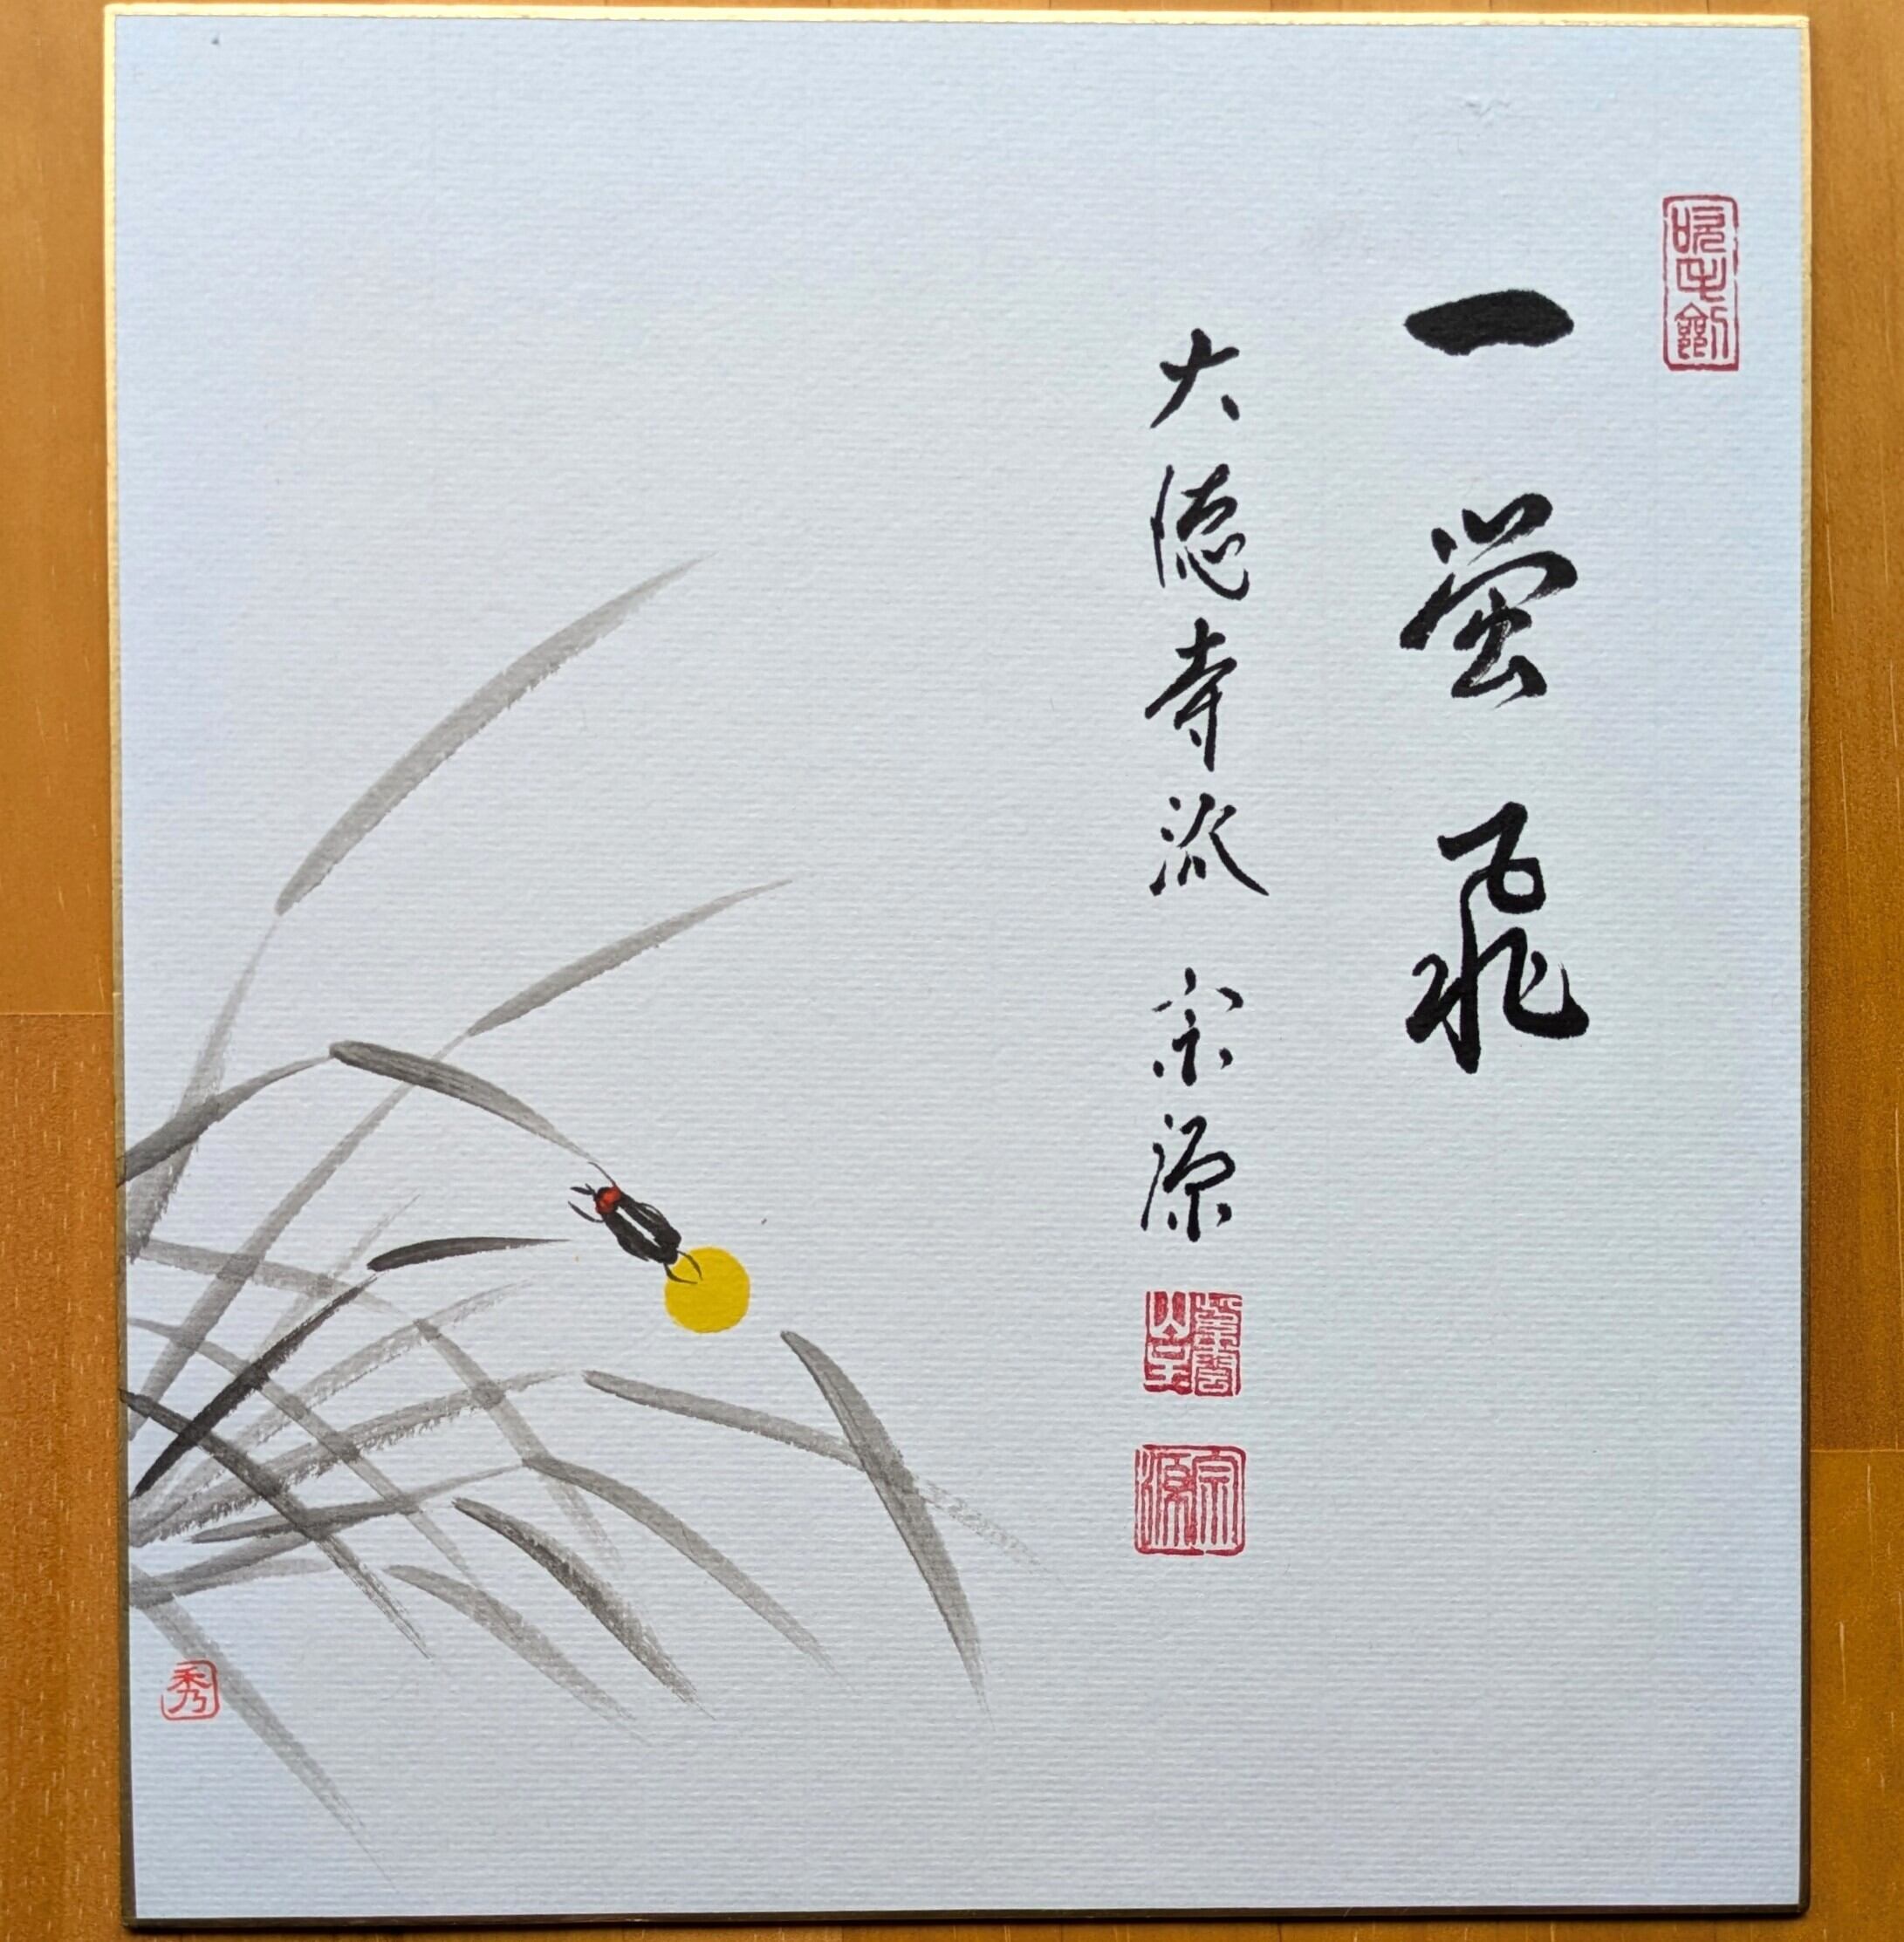 一蛍飛
大徳寺派 宗源
宗源
秀